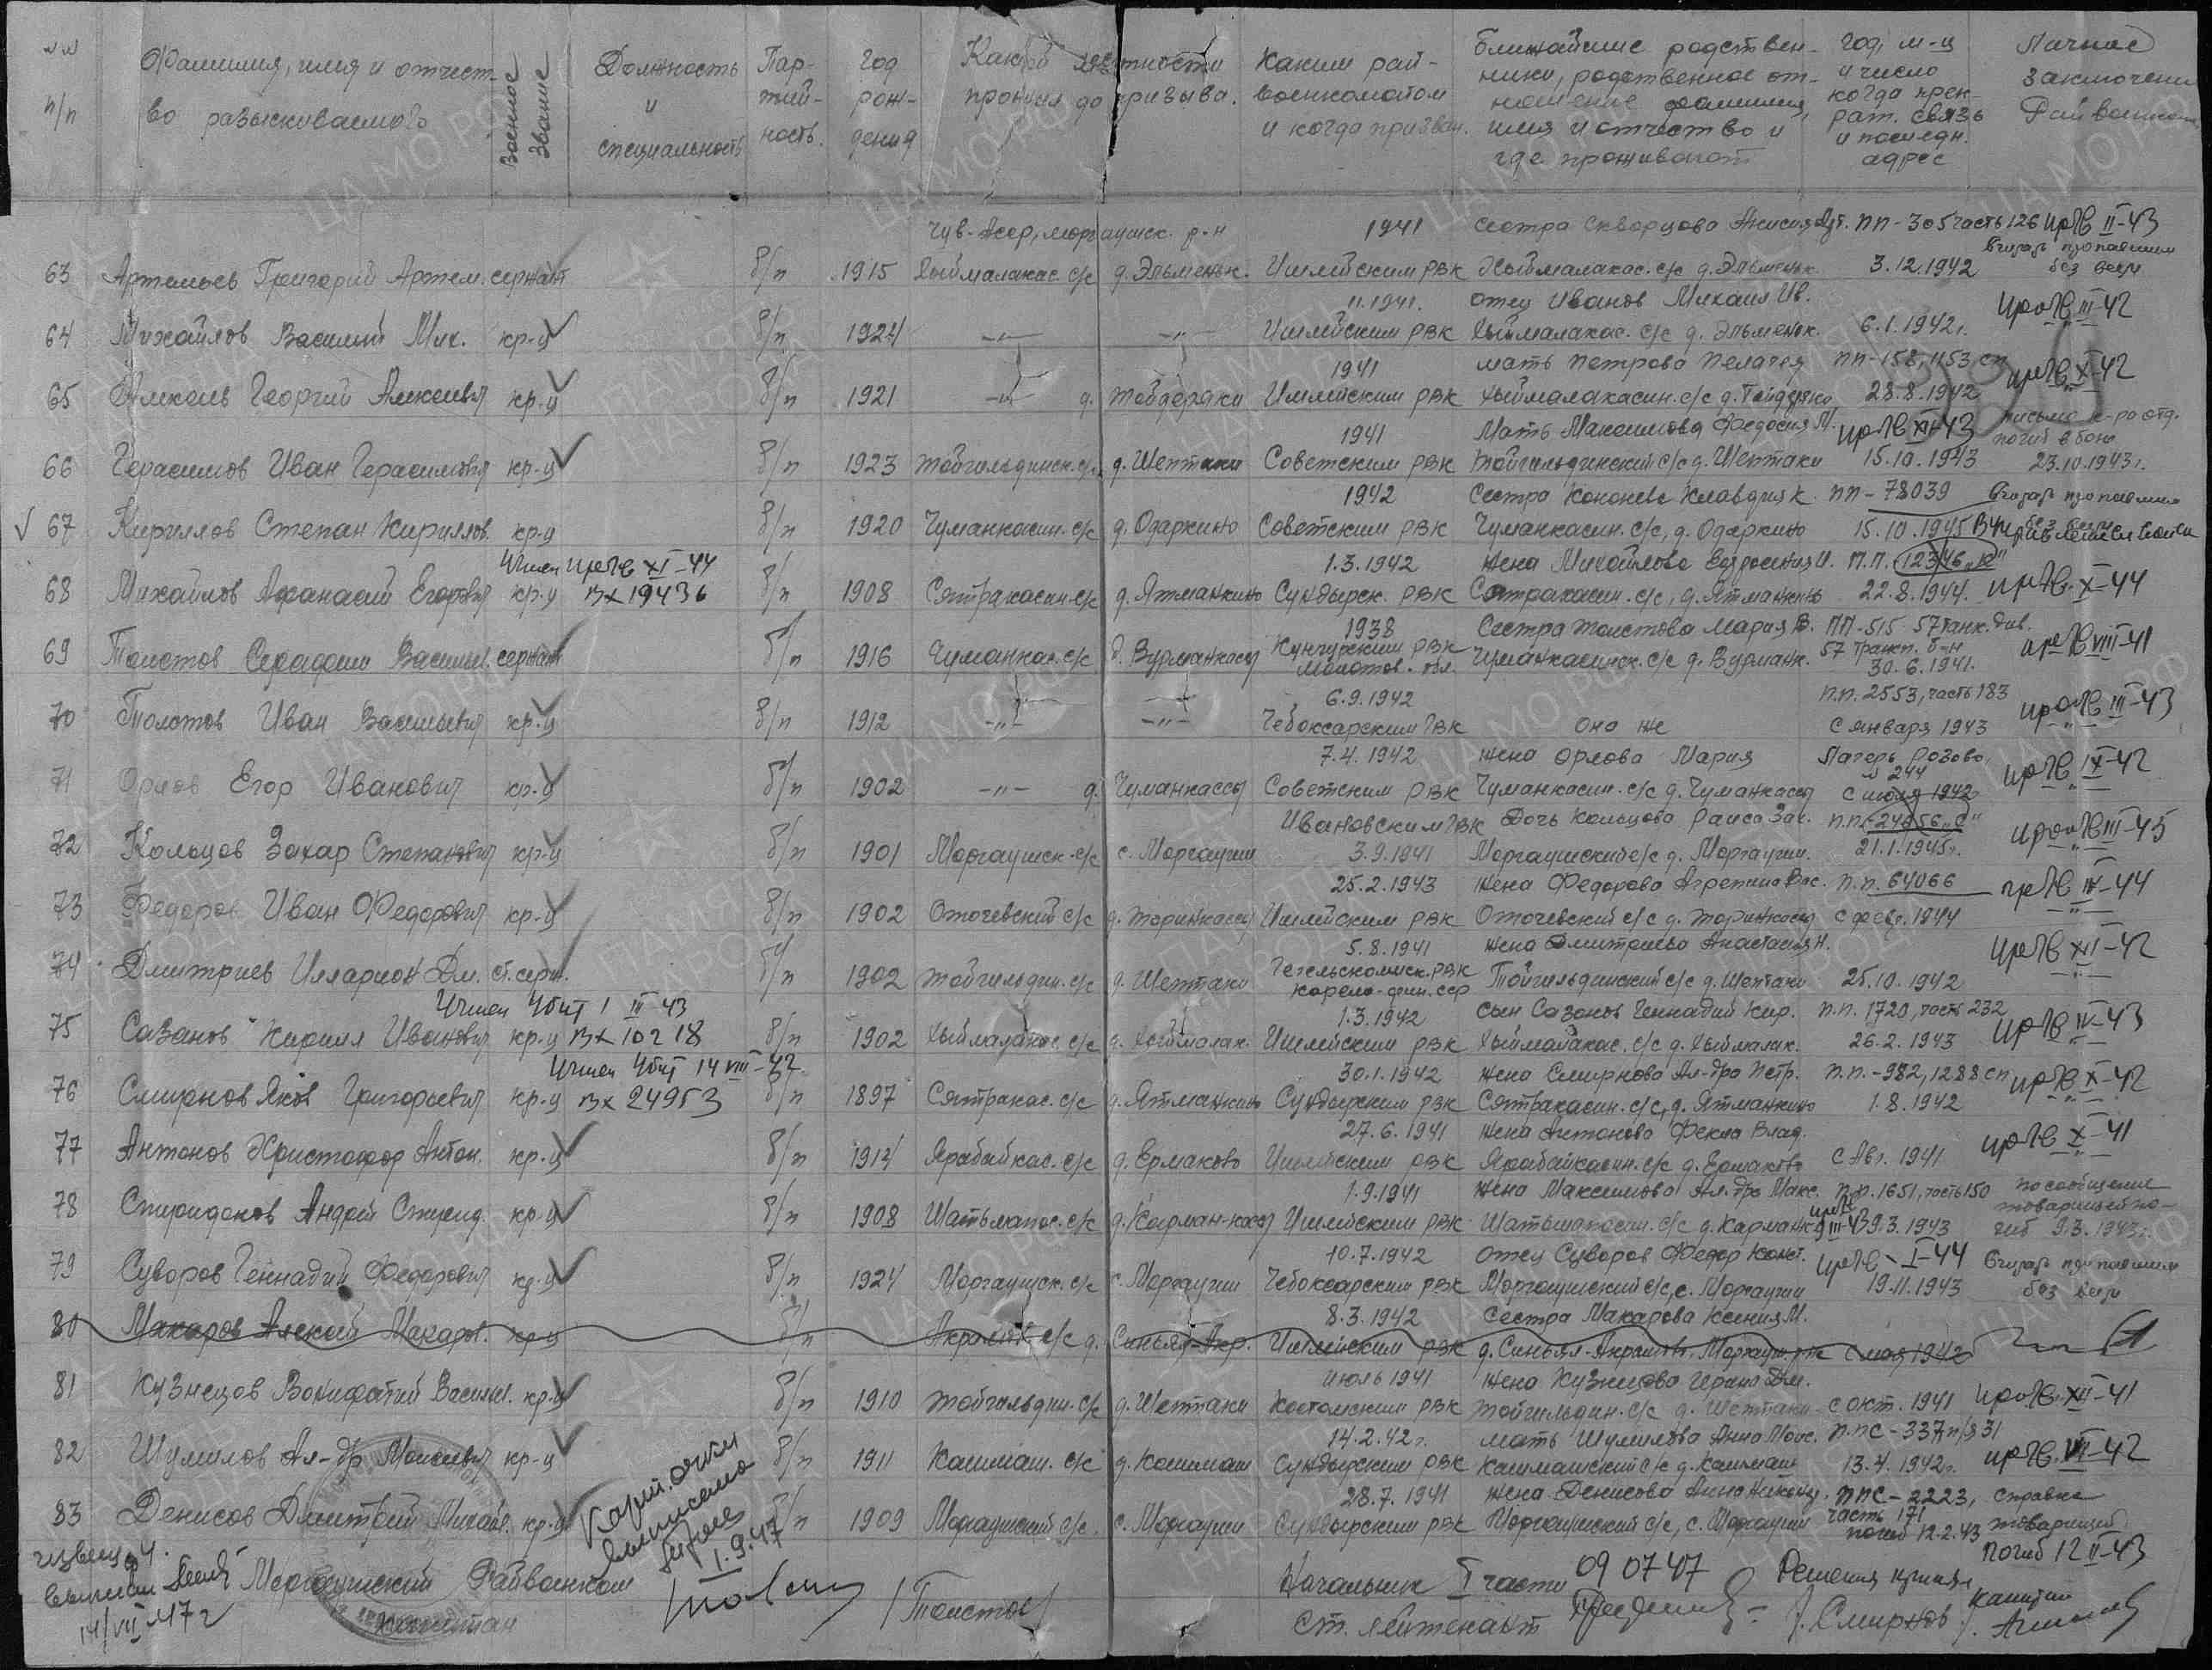 №№ п/п
Фамилия, имя и отчество разыскиваемого
Военное звание
Должность и специальность
Партийность
Год рождения
Какой местности прожил до призыва.
Каким райвоенкоматом и когда призван.
Ближайшие родственники, родственное отношение фамилия, имя и отчество и где проживают
Год, м-ц и число когда прекрат. связь и последн. адрес
Личное заключение Райвоенкома
Чув. Асср, моргаушск. р-н 1941 сестра Скворцова Анисия Арт. пп-305 часть 126 пр. б/в II-43
63 Артемьев Григорий Артем. сержант б/п 1915 Хыймалакас. с/с д. Эльменьк. Ишлейским РВК Хыймалакас. с/с д. Эльменьк. 3.12.1942 Считать пропавшим без вести
11.1941. отец Иванов Михаил Ив. пр. б/в III-42
64 Михайлов Василий Мих. кр-ц б/п 1924 -"- -"- Ишлейским РВК Хыймалакас. с/с д. Эльменьк. 6.1.1942г.
1941 мать Петрова Пелагея пп-158, 1153 сп пр. б/в X-42
65 Алексеев Георгий Алексеевич кр-ц б/п 1921 -"- д. Тойдеряки Ишлейским РВК Хыймалакасин. с/с д. Тойдеряки 28.8.1942
1941 Мать Максимова Федосия М. пр. б/в XI-43 письмо к-ра отд. погиб в бою
66 Герасимов Иван Герасимович кр-ц б/п 1923 Тойгильдинск. с/с д. Шептаки Советским РВК Тойгильдинский с/с д. Шептаки 15.10.1943 23.10.1943г.
1942 Сестра Кононева Клавдия К. пп-78039 Считать пропавшим без вести
√ 67 Кириллов Степан Кириллов. кр-ц б/п 1920 Чуманкасин. с/с д. Одаркино Советским РВК Чуманкасин. с/с, д. Одаркино 15.10.1945
Учтен пр. б/в XI-44 1.3.1942 Жена Михайлова Ефросиния И. П.П. 12346 "К"
68 Михайлов Афанасий Егорович кр-ц вх 19436 б/п 1908 Сятракасин. с/с д. Ятманкино Сундырск. РВК Сятракасин. с/с, д. Ятманкино 22.8.1944. пр. б/в. XI-44
1938 Сестра Толстова Мария В. ПП-515 57 танк. див.
69 Толстов Серафим Васильев. сержант б/п 1916 Чуманкас. с/с д. Вурманкассы Кунгурским РВК Молотов. обл. Чуманкасинск. с/с д. Вурманк. 57 трансп. б-н 30.6.1941. пр. б/в VIII-41
6.9.1942 п.п. 2553, часть 183
70 Толстов Иван Васильевич кр-ц б/п 1912 -"- -"- Чебоксарским РВК Она же С января 1943 пр. б/в III-43
7.4.1942 Жена Орлова Мария Лагерь Розово,
71 Орлов Егор Иванович кр-ц б/п 1902 -"- д. Чуманкассы Советским РВК Чуманкасин. с/с д. Чуманкассы 244 с июля 1942 пр. б/в IX-42
Ивановским РВК Дочь Кольцова Раиса Зах. п.п. 24656 "С"
72 Кольцов Захар Степанович кр-ц б/п 1901 Моргаушск. с/с с. Моргауши 3.9.1941 Моргаушский с/с д. Моргауши. 21.1.1945г. пр. б/в III-45
25.2.1943 Жена Федорова Агрепина Вас. п.п. 64066
73 Федоров Иван Федорович кр-ц б/п 1902 Оточевский с/с д. Торинкассы Ишлейским РВК Оточевский с/с д. Торинкассы с февр. 1944 пр. б/в IV-44
5.8.1941 Жена Дмитриева Анастасия Н.
74 Дмитриев Илларион Дм. ст. серж. б/п 1902 Тойгильдин. с/с д. Шептаки РВК Карело-фин. сср Тойгильдинский с/с д. Шептаки 25.10.1942 пр. б/в XII-42
Учтен Убит 1 III-43 1.3.1942 сын Сазанов Геннадий Кир. п.п. 1720, часть 232
75 Сазанов Кирилл Иванович кр-ц вх 10218 б/п 1902 Хыймалакас. с/с д. Хыймалак. Ишлейским РВК Хыймалакас. с/с д. Хыймалак. 26.2.1943 пр. б/в IV-43
Учтен Убит 14 VIII-42 30.1.1942 Жена Смирнова Ал-дра Петр. п.п.-982, 1288 сп
76 Смирнов Яков Григорьевич кр-ц вх 24953 б/п 1897 Сятракас. с/с д. Ятманкино Сундырским РВК Сятракасин. с/с, д. Ятманкино 1.8.1942 пр. б/в X-42
27.6.1941 Жена Антонова Фекла Влад.
77 Антонов Христофор Антон. кр-ц б/п 1914 Ярабайкас. с/с д. Ермаково Ишлейским РВК Ярабайкасин. с/с д. Ермаково с Авг. 1941 пр. б/в X-41
1.9.1941 Жена Максимова Ал-дра Макс. п.п. 1651, часть 150 по сообщение товарищей погиб 9.3.1943г.
78 Спиридонов Андрей Спирид. кр-ц б/п 1908 Шатьмапос. с/с д. Карман-касы Ишлейским РВК Шатьмапосин. с/с д. Карманк. 9.3.1943
10.7.1942 Отец Суворов Федор Конст. пр. б/в I-44 Считать пропавшим без вести
79 Суворов Геннадий Федорович кр-ц б/п 1924 Моргаушск. с/с с. Моргауши Чебоксарским РВК Моргаушский с/с, с. Моргауши 19.11.1943
8.3.1942 Сестра Макарова Ксения М.
80 Макаров Алексей Макаров. кр-ц б/п Акрамов. с/с д. Синьял-Акр. Ишлейским РВК д. Синьял-Акрамово, Моргауш. р-н с мая 1942
июль 1941 Жена Кузнецова Ирина Дм.
81 Кузнецов Вонифатий Васильев. кр-ц б/п 1910 Тойгильдин. с/с д. Шептаки РВК Тойгильдин. с/с д. Шептаки с окт. 1941 пр. б/в XII-41
14.2.42г. Мать Шумилова Анна Моис. п.пс-337 п/я 31
82 Шумилов Ал-др Моисеевич кр-ц б/п 1911 Кашмаш. с/с д. Кашмаши Сундырским РВК Кашмашский с/с д. Кашмаши 13.4.1942г. пр. б/в VII-42
28.7.1941 Жена Денисова Анна Никону. ппс-2223, справка
83 Денисов Дмитрий Михайл. кр-ц б/п 1909 Моргаушский с/с. с. Моргауши Сундырским РВК Моргаушский с/с, с. Моргауши часть 171 погиб 12.2.43 товарищей Погиб 12 II-43
Моргаушский Райвоенком
капитан /Толстов/
1.9.47
14/VII-47г
Начальник I части 090747
Ст. лейтенант
Решения принял
капитан
/Смирнов/